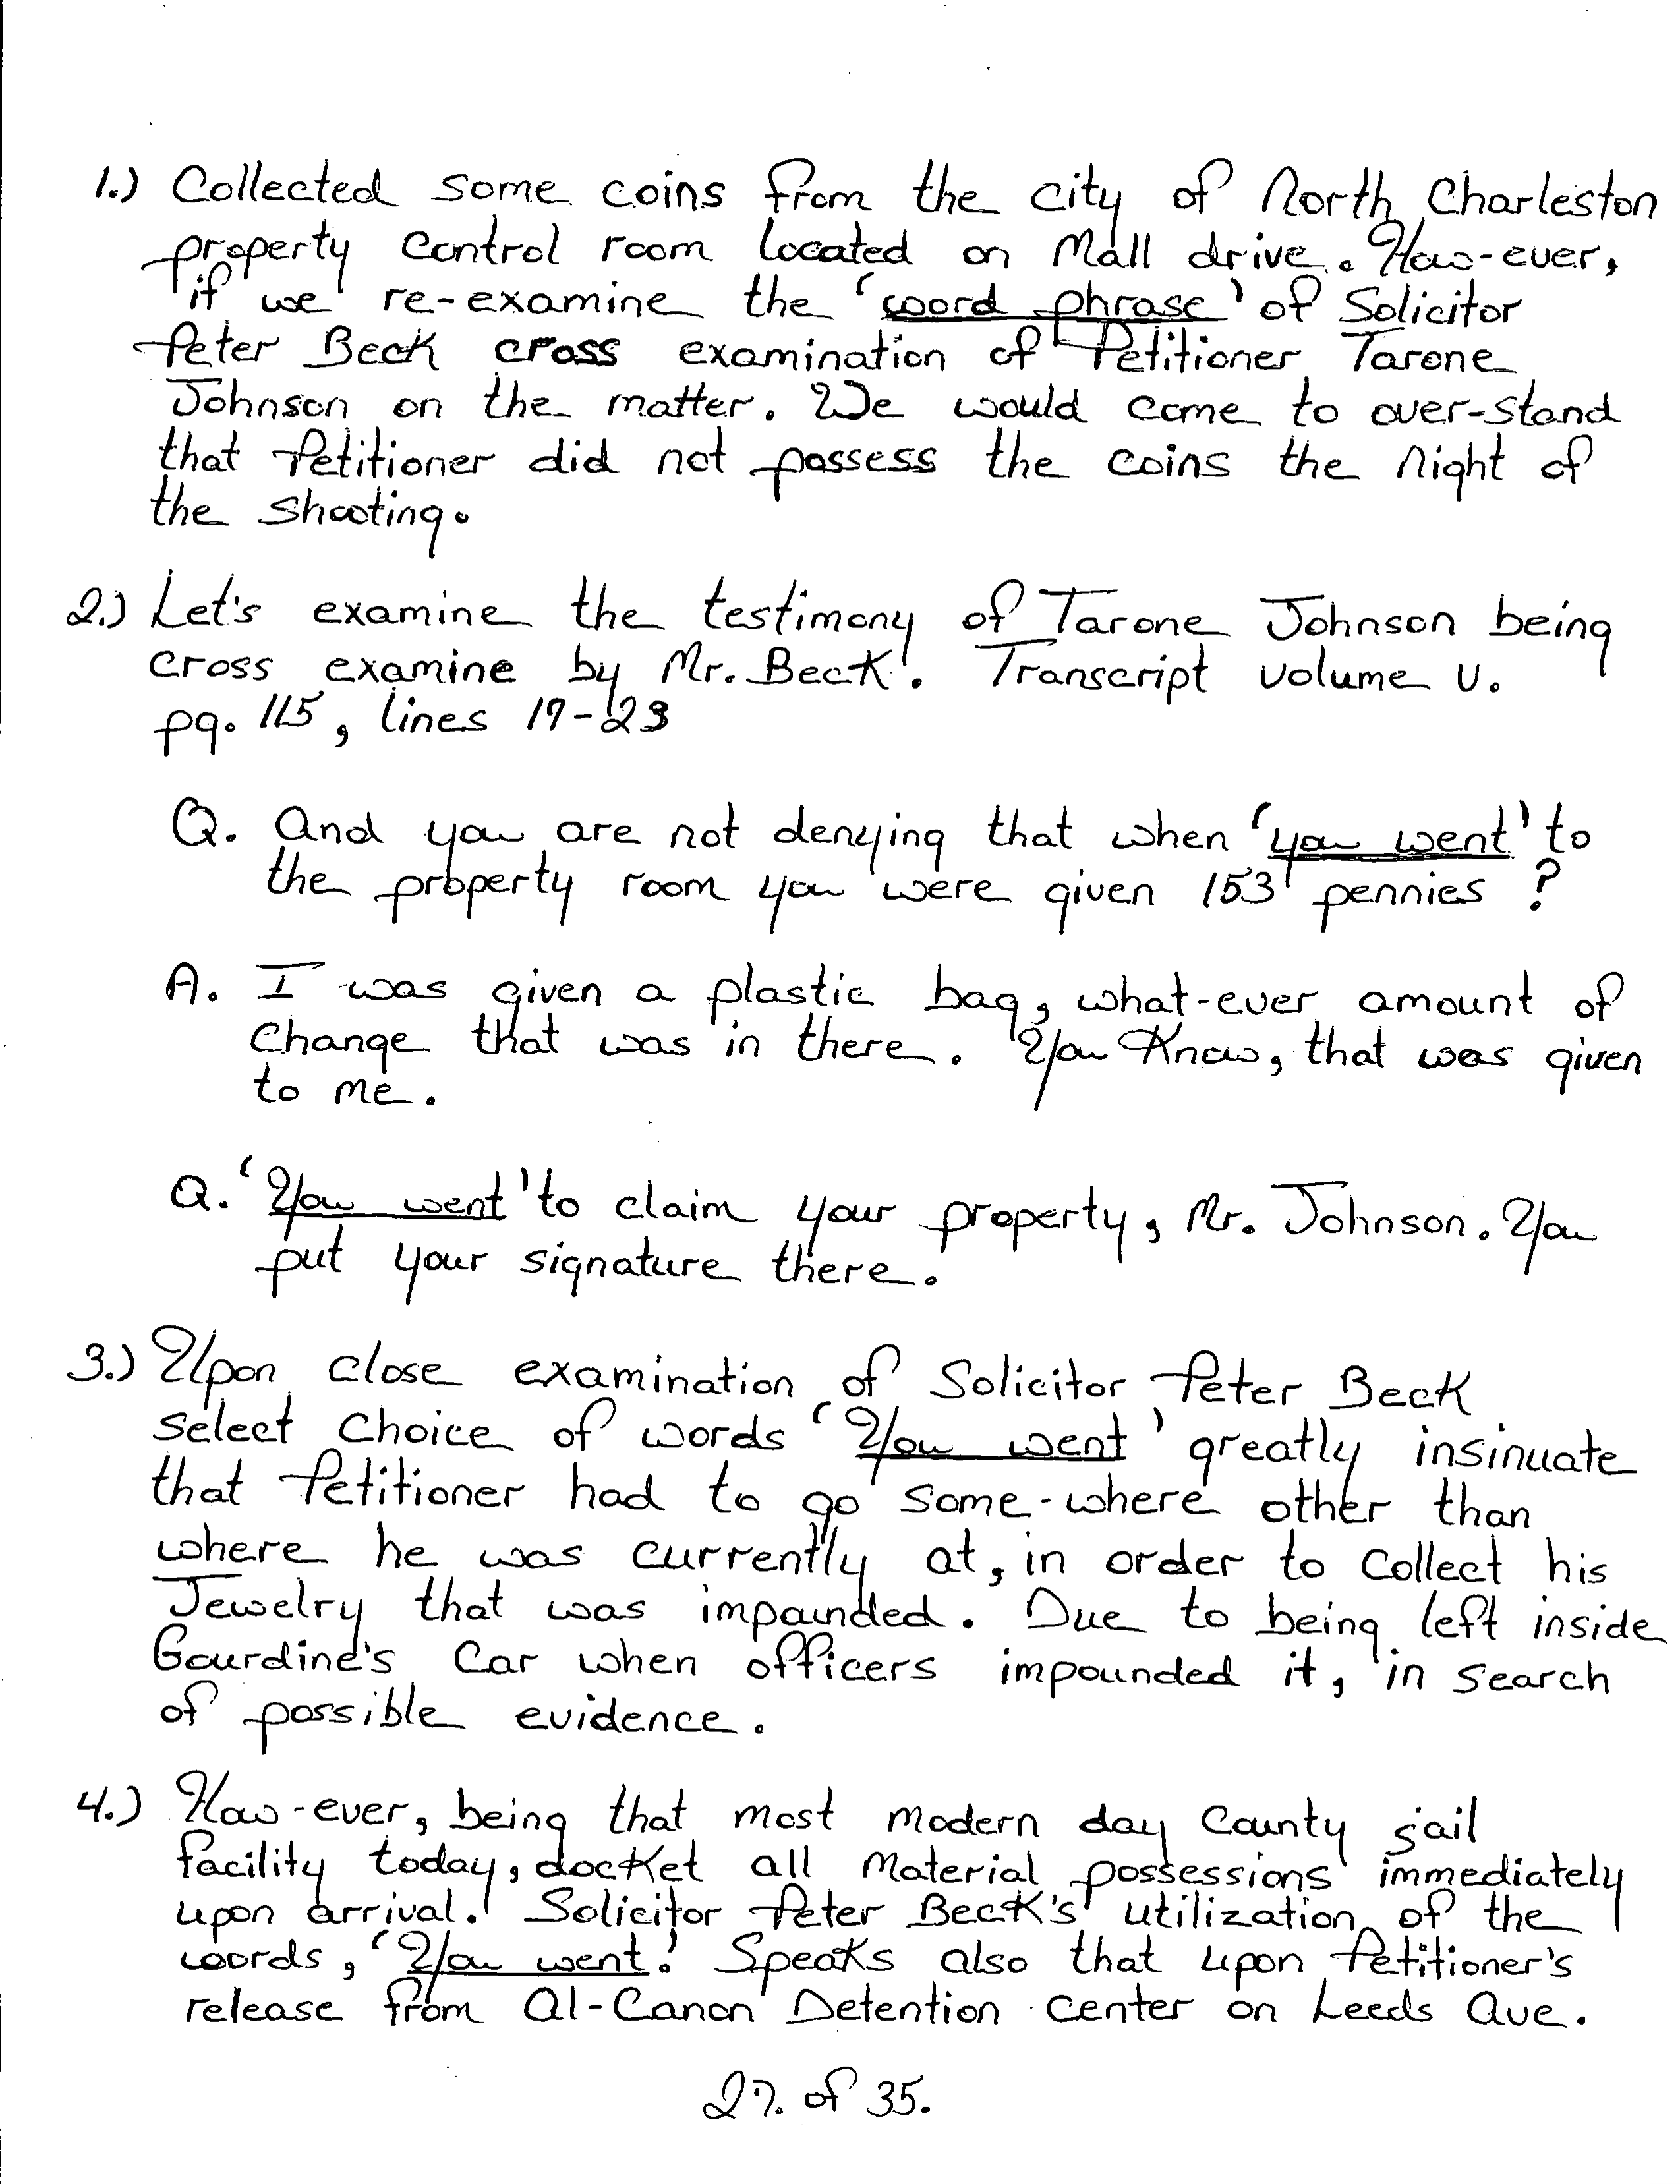 1.) Collected some coins from the city of North Charleston
property control room located on Mall drive. How-ever,
if we re-examine the 'word phrase' of Solicitor
Peter Beck cross examination of Petitioner Tarone
Johnson on the matter. We would come to over-stand
that Petitioner did not possess the coins the night of
the shooting.
2.) Let's examine the testimony of Tarone Johnson being
cross examine by Mr. Beck. Transcript volume V.
pg. 115, lines 19-23
Q. And you are not denying that when 'you went' to
the property room you were given 153 pennies ?
A. I was given a plastic bag, what-ever amount of
change that was in there. You Know, that was given
to me.
Q. 'You went' to claim your property, Mr. Johnson. You
put your signature there.
3.) Upon close examination of Solicitor Peter Beck
select choice of words 'You went' greatly insinuate
that Petitioner had to go some-where other than
where he was currently at, in order to collect his
Jewelry that was impounded. Due to being left inside
Gourdine's Car when officers impounded it, in search
of possible evidence.
4.) How-ever, being that most modern day County jail
facility today, docket all material possessions immediately
upon arrival. Solicitor Peter Beck's utilization of the
words, 'You went'. Speaks also that upon Petitioner's
release from Al-Canon Detention center on Leeds Ave.
27. of 35.